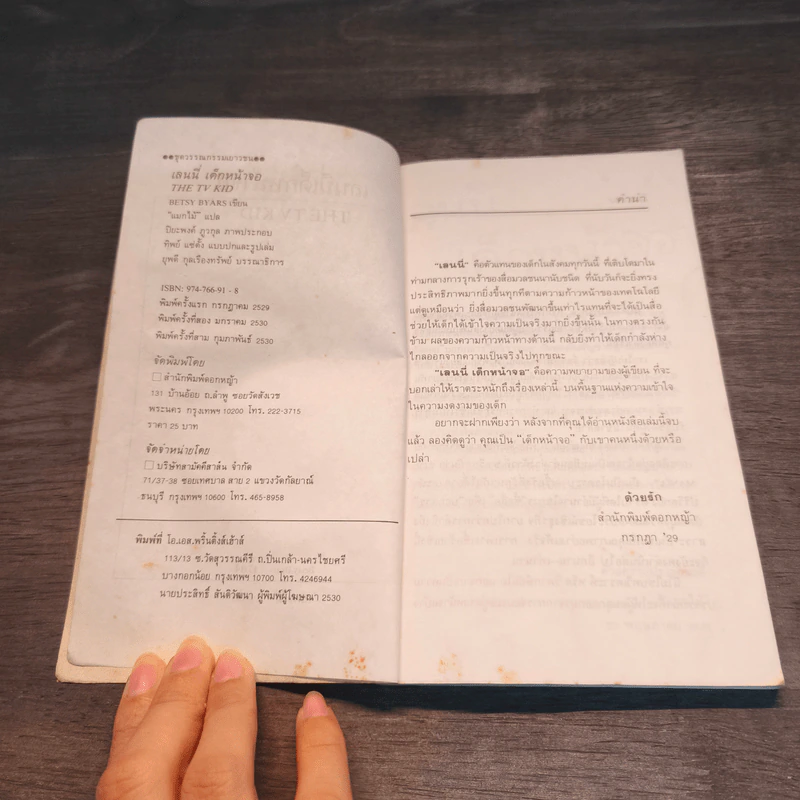 ●●ชุดวรรณกรรมเยาวชน●●
เลนนี่ เด็กหน้าจอ
THE TV KID
BETSY BYARS เขียน
"แมกไม้" แปล
ปิยะพงค์ ภูวกุล ภาพประกอบ
ทิพย์ แซ่ตั้ง แบบปกและรูปเล่ม
ยุพดี กูลเรืองทรัพย์ บรรณาธิการ
ISBN: 974-766-91 - 8
พิมพ์ครั้งแรก กรกฎาคม 2529
พิมพ์ครั้งที่สอง มกราคม 2530
พิมพ์ครั้งที่สาม กุมภาพันธ์ 2530
จัดพิมพ์โดย
สำนักพิมพ์ดอกหญ้า
131 บ้านอ้อย ถ.ลำพู ซอยวัดสังเวช
พระนคร กรุงเทพฯ 10200 โทร. 222-3715
ราคา 25 บาท
จัดจำหน่ายโดย
บริษัทสามัคคีสาส์น จำกัด
71/37-38 ซอยเทศบาล สาย 2 แขวงวัดกัลยาณ์
ธนบุรี กรุงเทพฯ 10600 โทร. 465-8958
พิมพ์ที่ โอ.เอส.พริ้นติ้งส์เฮ้าส์
113/13 ซ.วัดสุวรรณคีรี ถ.ปิ่นเกล้า-นครไชยศรี
บางกอกน้อย กรุงเทพฯ 10700 โทร. 4246944
นายประสิทธิ์ สันติวัฒนา ผู้พิมพ์ผู้โฆษณา 2530
คำนำ
"เลนนี่" คือตัวแทนของเด็กในสังคมทุกวันนี้ ที่เติบโตมาใน
ท่ามกลางการรุกเร้าของสื่อมวลชนนานับชนิด ที่นับวันก็จะยิ่งทรง
ประสิทธิภาพมากยิ่งขึ้นทุกทีตามความก้าวหน้าของเทคโนโลยี
แต่ดูเหมือนว่า ยิ่งสื่อมวลชนพัฒนาขึ้นเท่าไรแทนที่จะได้เป็นสื่อ
ช่วยให้เด็กได้เข้าใจความเป็นจริงมากยิ่งขึ้นนั้น ในทางตรงกัน
ข้าม ผลของความก้าวหน้าทางด้านนี้ กลับยิ่งทำให้เด็กกำลังห่าง
ไกลออกจากความเป็นจริงไปทุกขณะ
"เลนนี่ เด็กหน้าจอ" คือความพยายามของผู้เขียน ที่จะ
บอกเล่าให้เราตระหนักถึงเรื่องเหล่านี้ บนพื้นฐานแห่งความเข้าใจ
ในความงดงามของเด็ก
อยากจะฝากเพียงว่า หลังจากที่คุณได้อ่านหนังสือเล่มนี้จบ
แล้ว ลองคิดดูว่า คุณเป็น "เด็กหน้าจอ" กับเขาคนหนึ่งด้วยหรือ
เปล่า
ด้วยรัก
สำนักพิมพ์ดอกหญ้า
กรกฎา '29